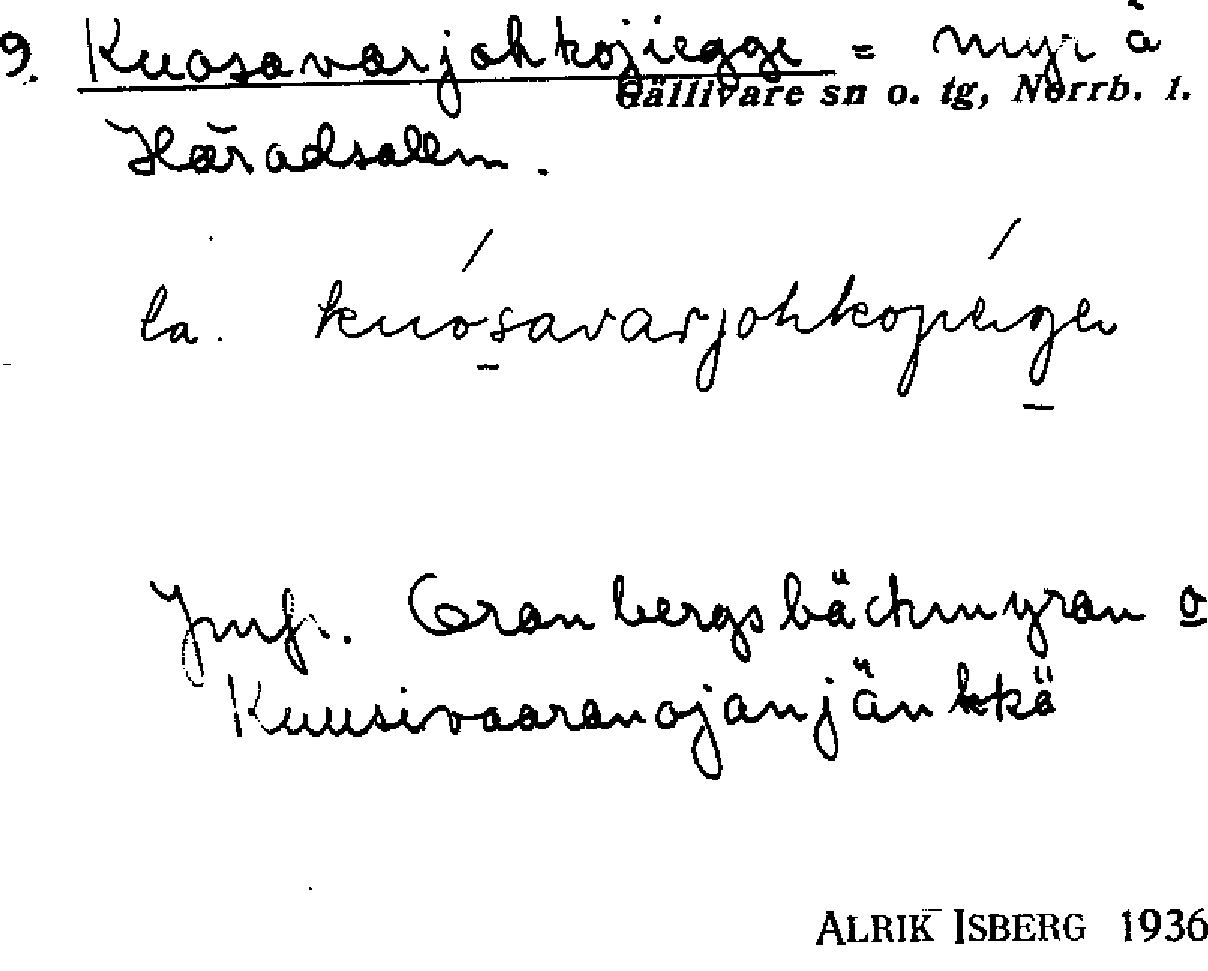 9. Kuosavarjohkojiegge = myr å
Gällivare sn o. tg, Norrb. l.
Häradsallm.
la. kuosavarjohkojiegge
Jmfr. Granbergsbäckmyran o
Kuusivaaranojanjänkkä
ALRIK ISBERG 1936